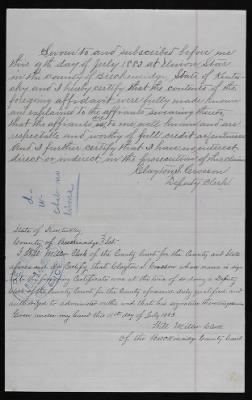 Sworn to and subscribed before me
this 9th day of July 1883 at Union Star
in the County of Breckinridge State of Kentu-
cky and I hereby certify that the contents of the
foregoing affidavit were fully made known
and explained to the affiants swearing thereto,
that the affiants is to me well known and are
respectable and worthy of full credit as witnesses
and I further certify that I have no interest
direct or indirect in the prosecution of this claim
Clayton S. Crosson
Deputy Clerk
State of Kentucky
County of Breckinridge } Sct.
I Will Miller Clerk of the County Court for the County and State
aforesaid do Certify that Clayton S. Crosson whose name is sign
to the foregoing Certificate was at the time of so doing a Deputy
Clerk of the County Court for the County aforesaid duly qualified and
authorized to administer oaths and that his signature thereto is genuine
Given under my hand this 11th day of July 1883
Will Miller Clerk
Of the Breckinridge County Court